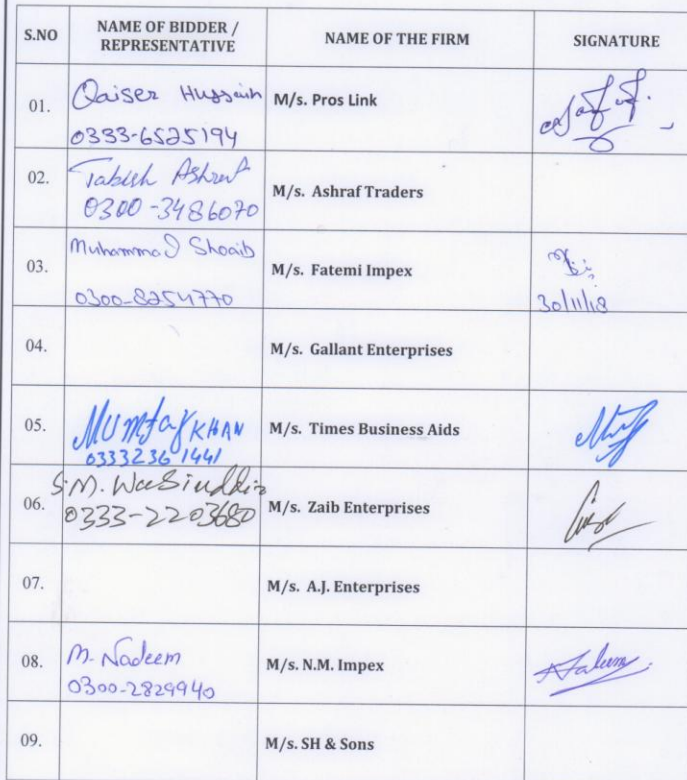 S.NO
NAME OF BIDDER /
REPRESENTATIVE
NAME OF THE FIRM
SIGNATURE
01.
Qaiser Hussain
0333-6525194
M/s. Pros Link
02.
Tabish Ashraf
0300-3486070
M/s. Ashraf Traders
03.
Muhammad Shoaib
0300-8254770
M/s. Fatemi Impex
30/11/18
04.
M/s. Gallant Enterprises
05.
Mumtaz KHAN
03332361441
M/s. Times Business Aids
06.
S.M. Wasiuddin
0333-2203680
M/s. Zaib Enterprises
07.
M/s. A.J. Enterprises
08.
M. Nadeem
0300-2829940
M/s. N.M. Impex
09.
M/s. SH & Sons